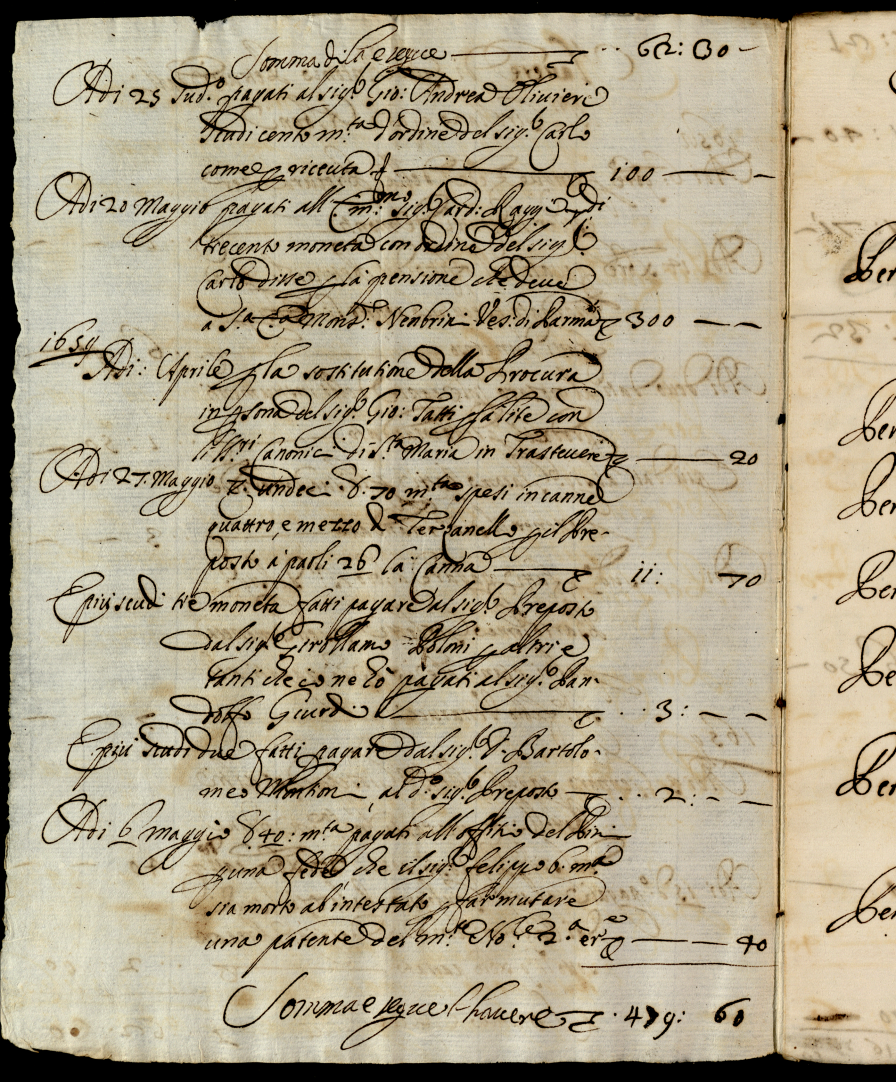 Somma di là, e segue — 62: 30 –
Adi 25 sud.º pagati al sig.r Gio: Andrea Olivieri
scudi cento m.ta d'ordine del sig.r Carlo
come p ricevuta f — 100 — –
Adi 20 Maggio pagati all' Em.mo sig.r Card: Ragg: di
trecento moneta con ordine del sig.r
Carlo disse p la pensione che deve
a S.a Mons.r Nembrini Ves: di Parma 300 — –
1659
Adi: Aprile p la sostitutione della Procura
in psona del sig.r Gio: Tatti p la lite con
li SS.ri Canonici di S.ta Maria in Trastevere — 20
Adi 27. Maggio undeci 70 m.ta spesi in canne
quattro, e mezzo di Terzanello p il Pre-
posto à paoli 26 la Canna — ii: 70
E piu scudi tre moneta fatti pagare dal sig.r Preposto
dal sig.r Girollamo p altri e
tanti che io ne hò pagati al sig.r Pan-
dolfo — 3: – –
E piu scudi due fatti pagare dal sig.r D. Bartolo-
meo al d.º sig.r Preposto — 2: – –
Adi 6 Maggio 40: m.ta pagati all' offitio del
p una fede che il sig.r Felippo b: m.a
sia morto ab intestato p far mutare
una patente del m.te No.le 2.a er.e — 40
Somma e segue l'havere — 479: 60